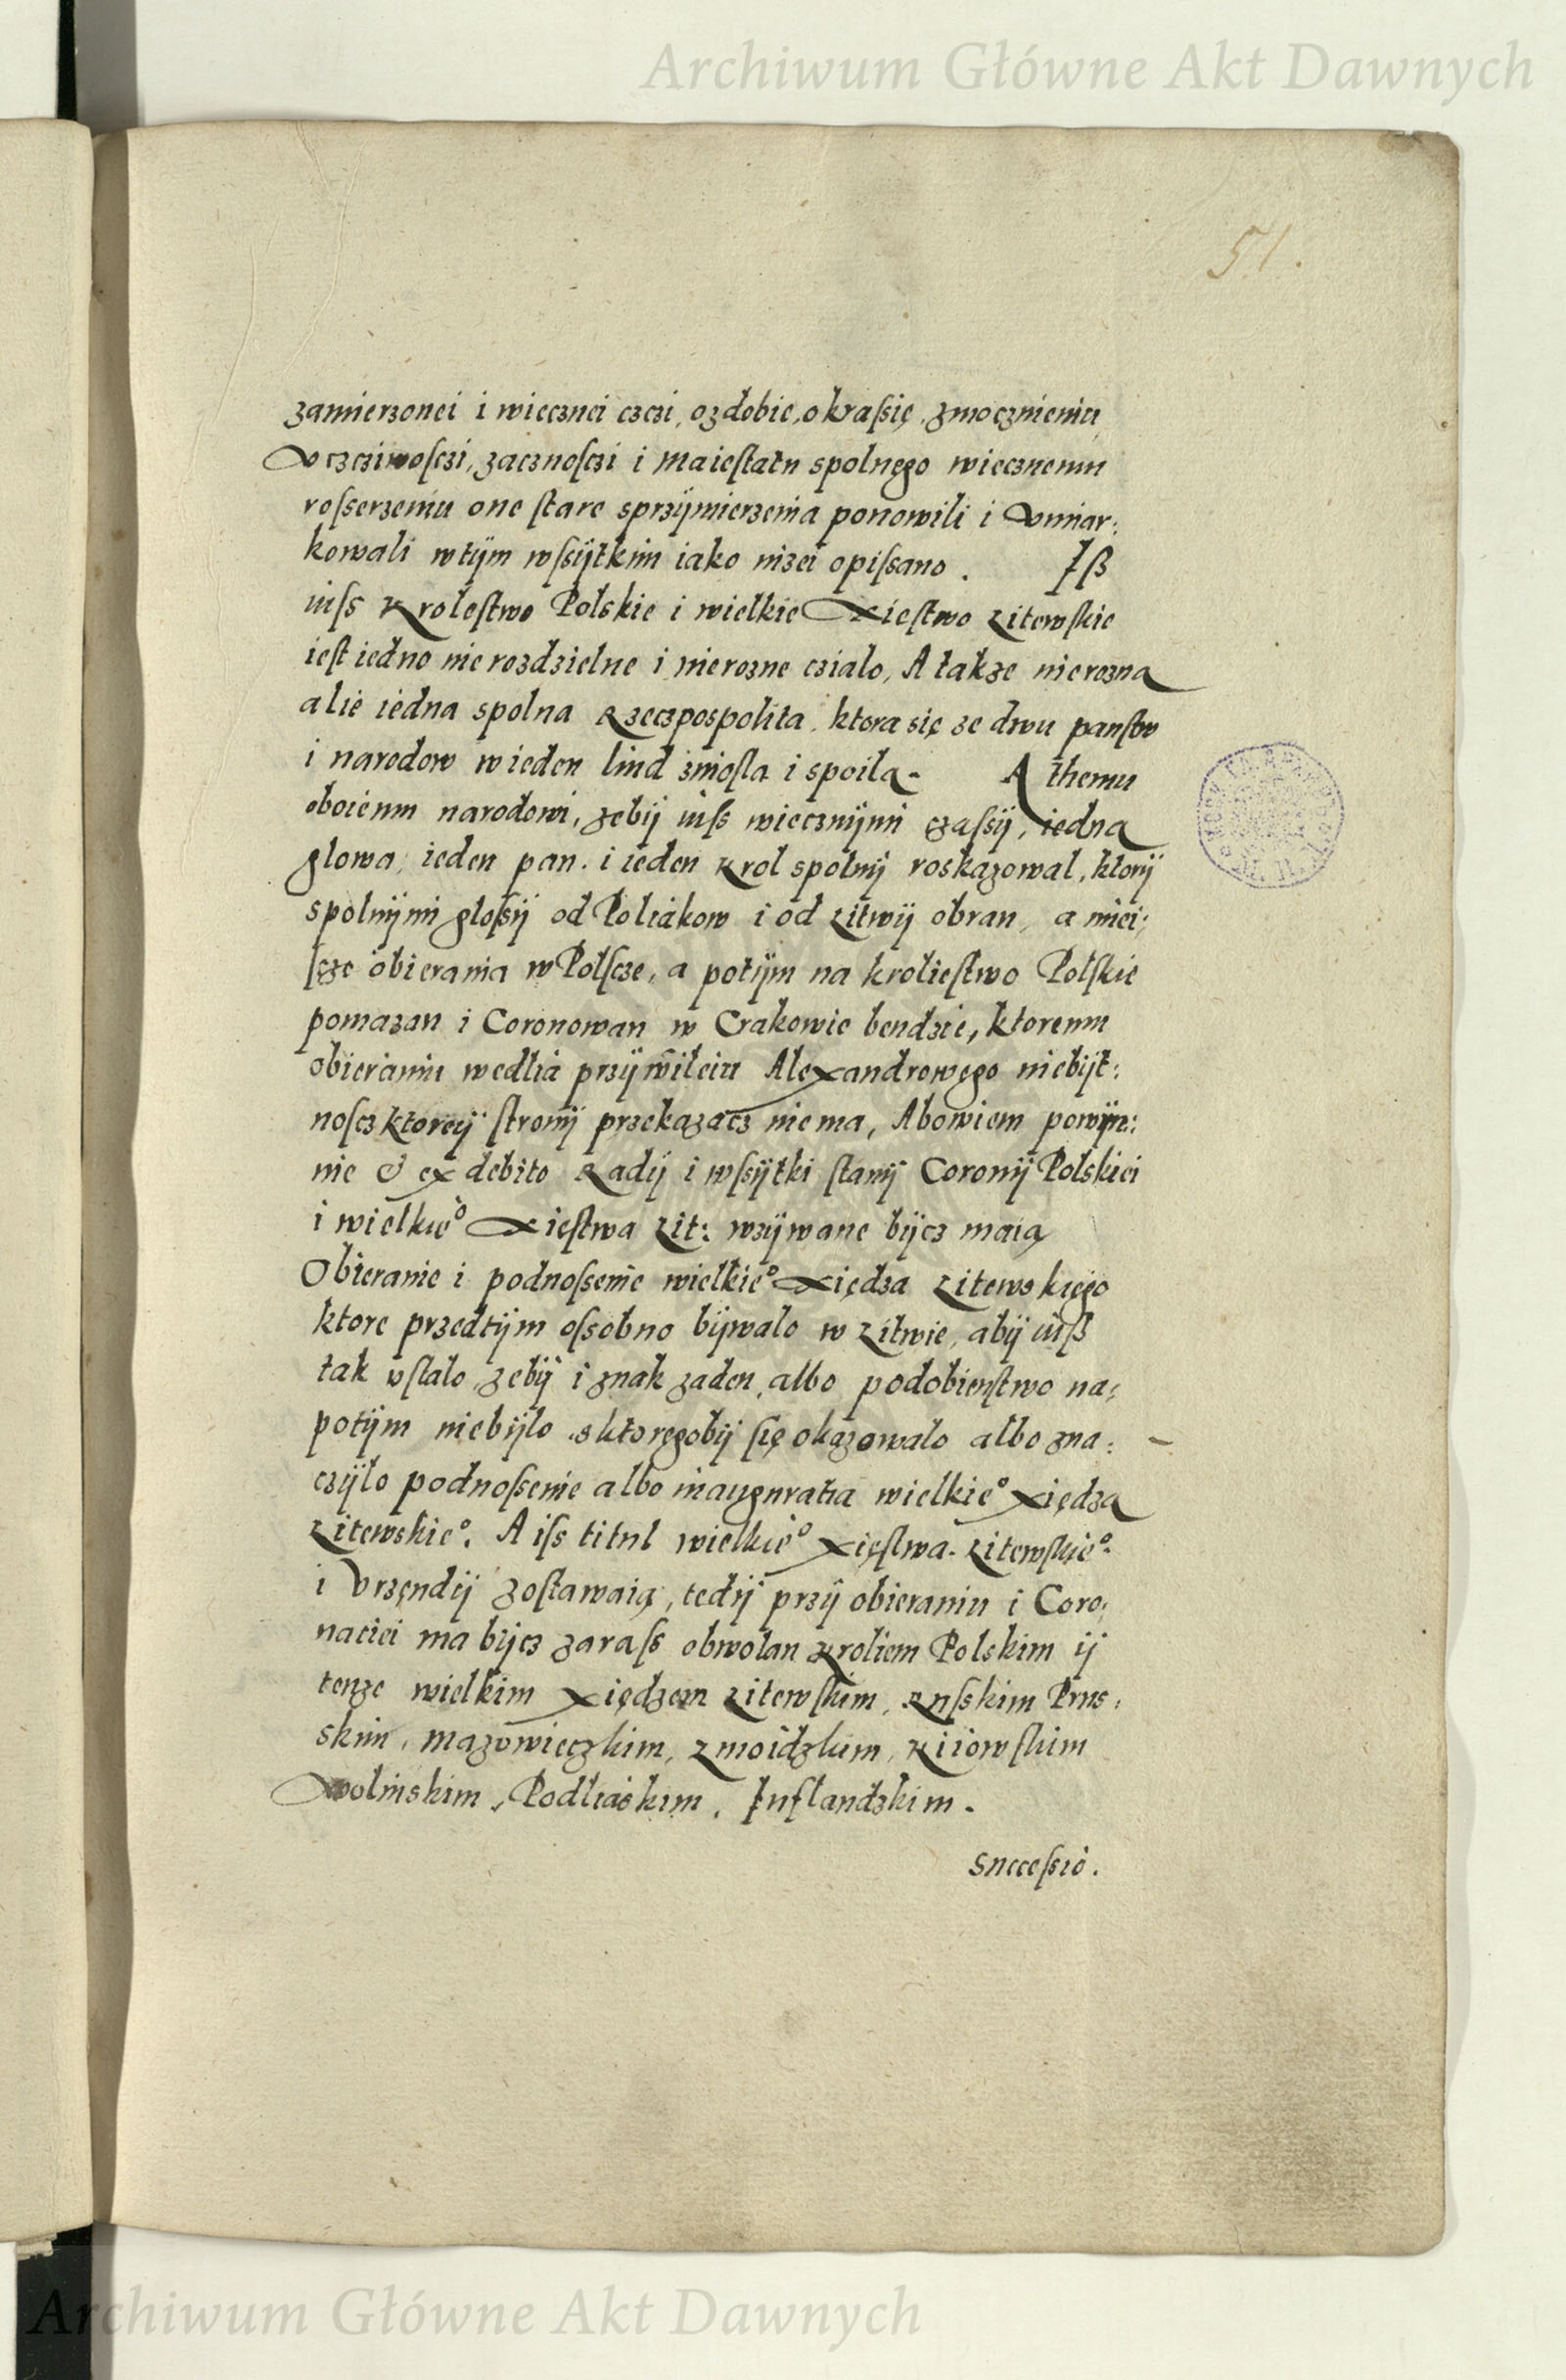 Archiwum Główne Akt Dawnych
51.
zamierzonei i wiecznei czci, ozdobie, okraſsię, zmocznieniu,
vczciwoſczi, zacznoſczi i maieſtatu spolnęgo wiecznemu
roſserzeniu one ſtare sprzÿmierzenia ponowili i vmiar:
kowali wtÿm wſsÿtkim iako nizei opiſsano. Iß
iuſs Kroleſtwo Polskie i wielkie Xieſtwo Litewſkie
ieſt iedno nierozdzielne i nierozne czialo, A takze nierozna
alie iedna spolna Rzeczpospolita. ktora się ze dwu panſtw
i narodow w ieden liud znioſla i spoila. A themu
oboiemu narodowi, zebÿ iuſs wiecznÿmi czaſsÿ, iedna
glowa, ieden pan. i ieden Krol spolnÿ roskazowal, ktorÿ
spolnÿmi gloſsÿ od Poliakow i od Litwÿ obran, a miei:
ſcze obierania w Polſcze, a potÿm na krolieſtwo Polſkie
pomazan i Coronowan w Crakowie bendzie, ktoremu
obieraniu wedlia przÿwileiu Alexandrowęgo niebÿt:
noſcz ktoreÿ ſtronÿ przekazacz nie ma, Abowiem powÿn:
nie & ex debito Radÿ i wſsÿtki ſtanÿ Coronÿ Polskiei
i wielkie° Xięſtwa Lit: wzÿwane bÿcz maią
Obieranie i podnoſsenie wielkie° Xiędza Litewskięgo
ktore przedtÿm oſsobno bÿwalo w Litwie, abÿ iuß
tak vſtalo, zebÿ i znak zaden, albo podobienſtwo na:
potÿm niebÿlo, z ktoręgobÿ ſię okazowalo albo zna:
czÿlo podnoſsenie albo inauguratia wielkie° Xiędza
Litewskie°. A iſs titul wielkie° Xięſtwa. Litewſkie°.
i Vrzęndÿ zoſtawaią, tedÿ przÿ obieraniu i Coro:
naciei ma bÿcz zaraſs obwolan Kroliem Polskim ÿ
tenze wielkim Xiędzem Litewſkim, Ruſskim Prus:
skim, Mazowieczkim, Zmoidzkim, Kiiowſkim
Wolinskim, Podliaskim, Inflandzkim.
Succeſsio.
Archiwum Główne Akt Dawnych